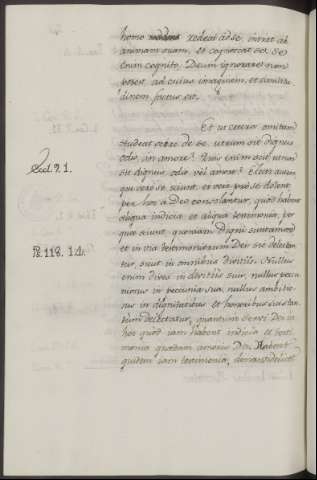 homo redeat ad se, intret ad
animam suam, et cognoscat se. Se
enim cognito, Deum ignorare non
potest, ad cuius imaginem, et similitu
dinem factus est.
Et ut cetera omittam
studeat scire de se, utrum sit dignus
odio, an amore? Quis enim scit, utrum
sit dignus odio vel amore?
Eccl. 9. 1.
qui vere se sciunt, et vere pro se dolent,
per hoc a Deo consolantur, quod habent
aliqua indicia, et aliqua testimonia, per
que sciunt, quoniam digni sunt amore
et in via testimoniorum Dei sic delectan
Ps. 118. 14.
tur, sicut in omnibus divitiis. Nullus
enim dives in divitiis suis, nullus pecu
niosus in pecunia sua, nullus ambitio
sus in dignitatibus et honoribus suis tan
tum delectatur, quantum servi Dei in
hoc quod iam habent indicia et testi
monia quædam amoris Dei. Habent
quidem iam testimonia,